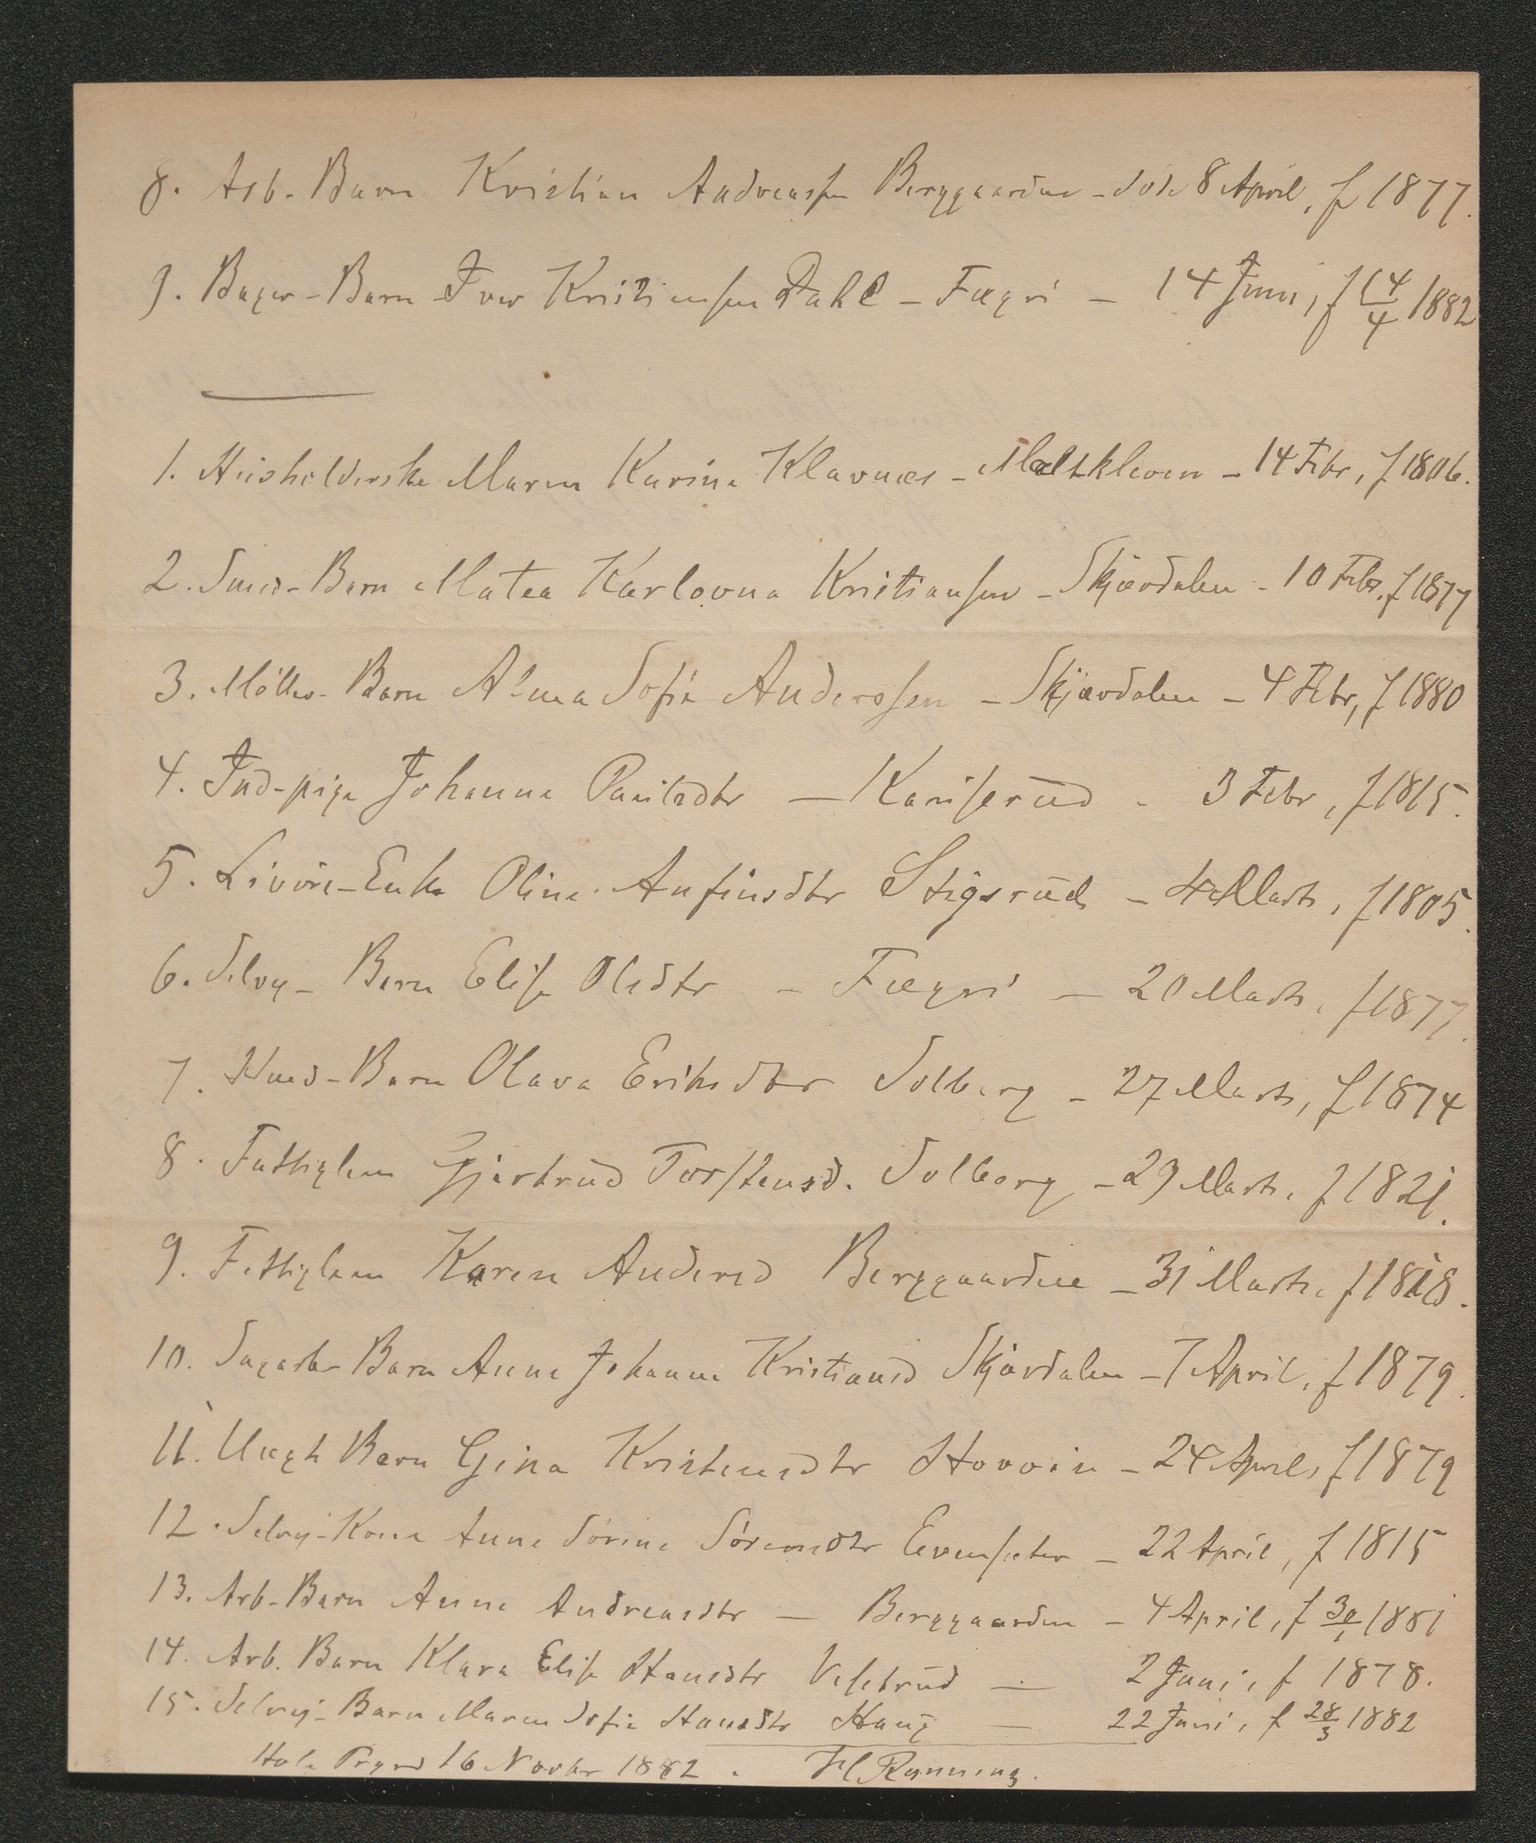 8. Arb.- Barn Kristian Andreassen Berggaarden - døde 8 April, f 1877.
9. Bager - Barn Iver Kristiansen Dahl - Fægri - 14 Juni, f 14/4 1882
1. Husholderske Maren Karine Klavnæs - Mælkleven - 14 Febr, f 1806.
2. Smed - Barn Matea Karlovna Kristiansen - Skjærdalen - 10 Febr. f 1877
3. Møller - Barn Alma Sofie Anderssen - Skjærdalen - 4 Febr, f 1880
4. Ind-pige Johanne Paulsdtr - Kaniserud - 3 Febr, f 1815.
5. Livøre-Enke Oline Anfinsdtr Stigsrud - 4 Marts, f 1805.
6. Selvej - Barn Elise Olsdtr - Fægri - 20 Marts, f 1877.
7. Husm - Barn Olava Eriksdtr Solberg - 27 Marts, f 1874
8. Fattiglem Gjertrud Torstensd. Solberg - 29 Marts, f 1821.
9. Fattiglem Karen Andersd Berggaarden - 31 Marts, f 1818.
10. Sagarb Barn Anne Johanne Kristiansd Skjærdalen - 7 April, f 1879.
11. Uægt Barn Gina Kristensdtr Hovvin - 24 April, f 1879
12. Selvej-Kone Anne Sørine Sørensdtr Evenseter - 22 April, f 1815
13. Arb- Barn Anne Andreasdtr - Berggaarden - 4 April, f 30/1 1881
14. Arb. Barn Klara Elise Hansdtr Vesetrud - 2 Juni, f 1878.
15. Selvej - Barn Maren Sofie Hansdtr Haug - 22 Juni, f 28/3 1882
Hole Prgrd 16 Novbr 1882. H Rynning.